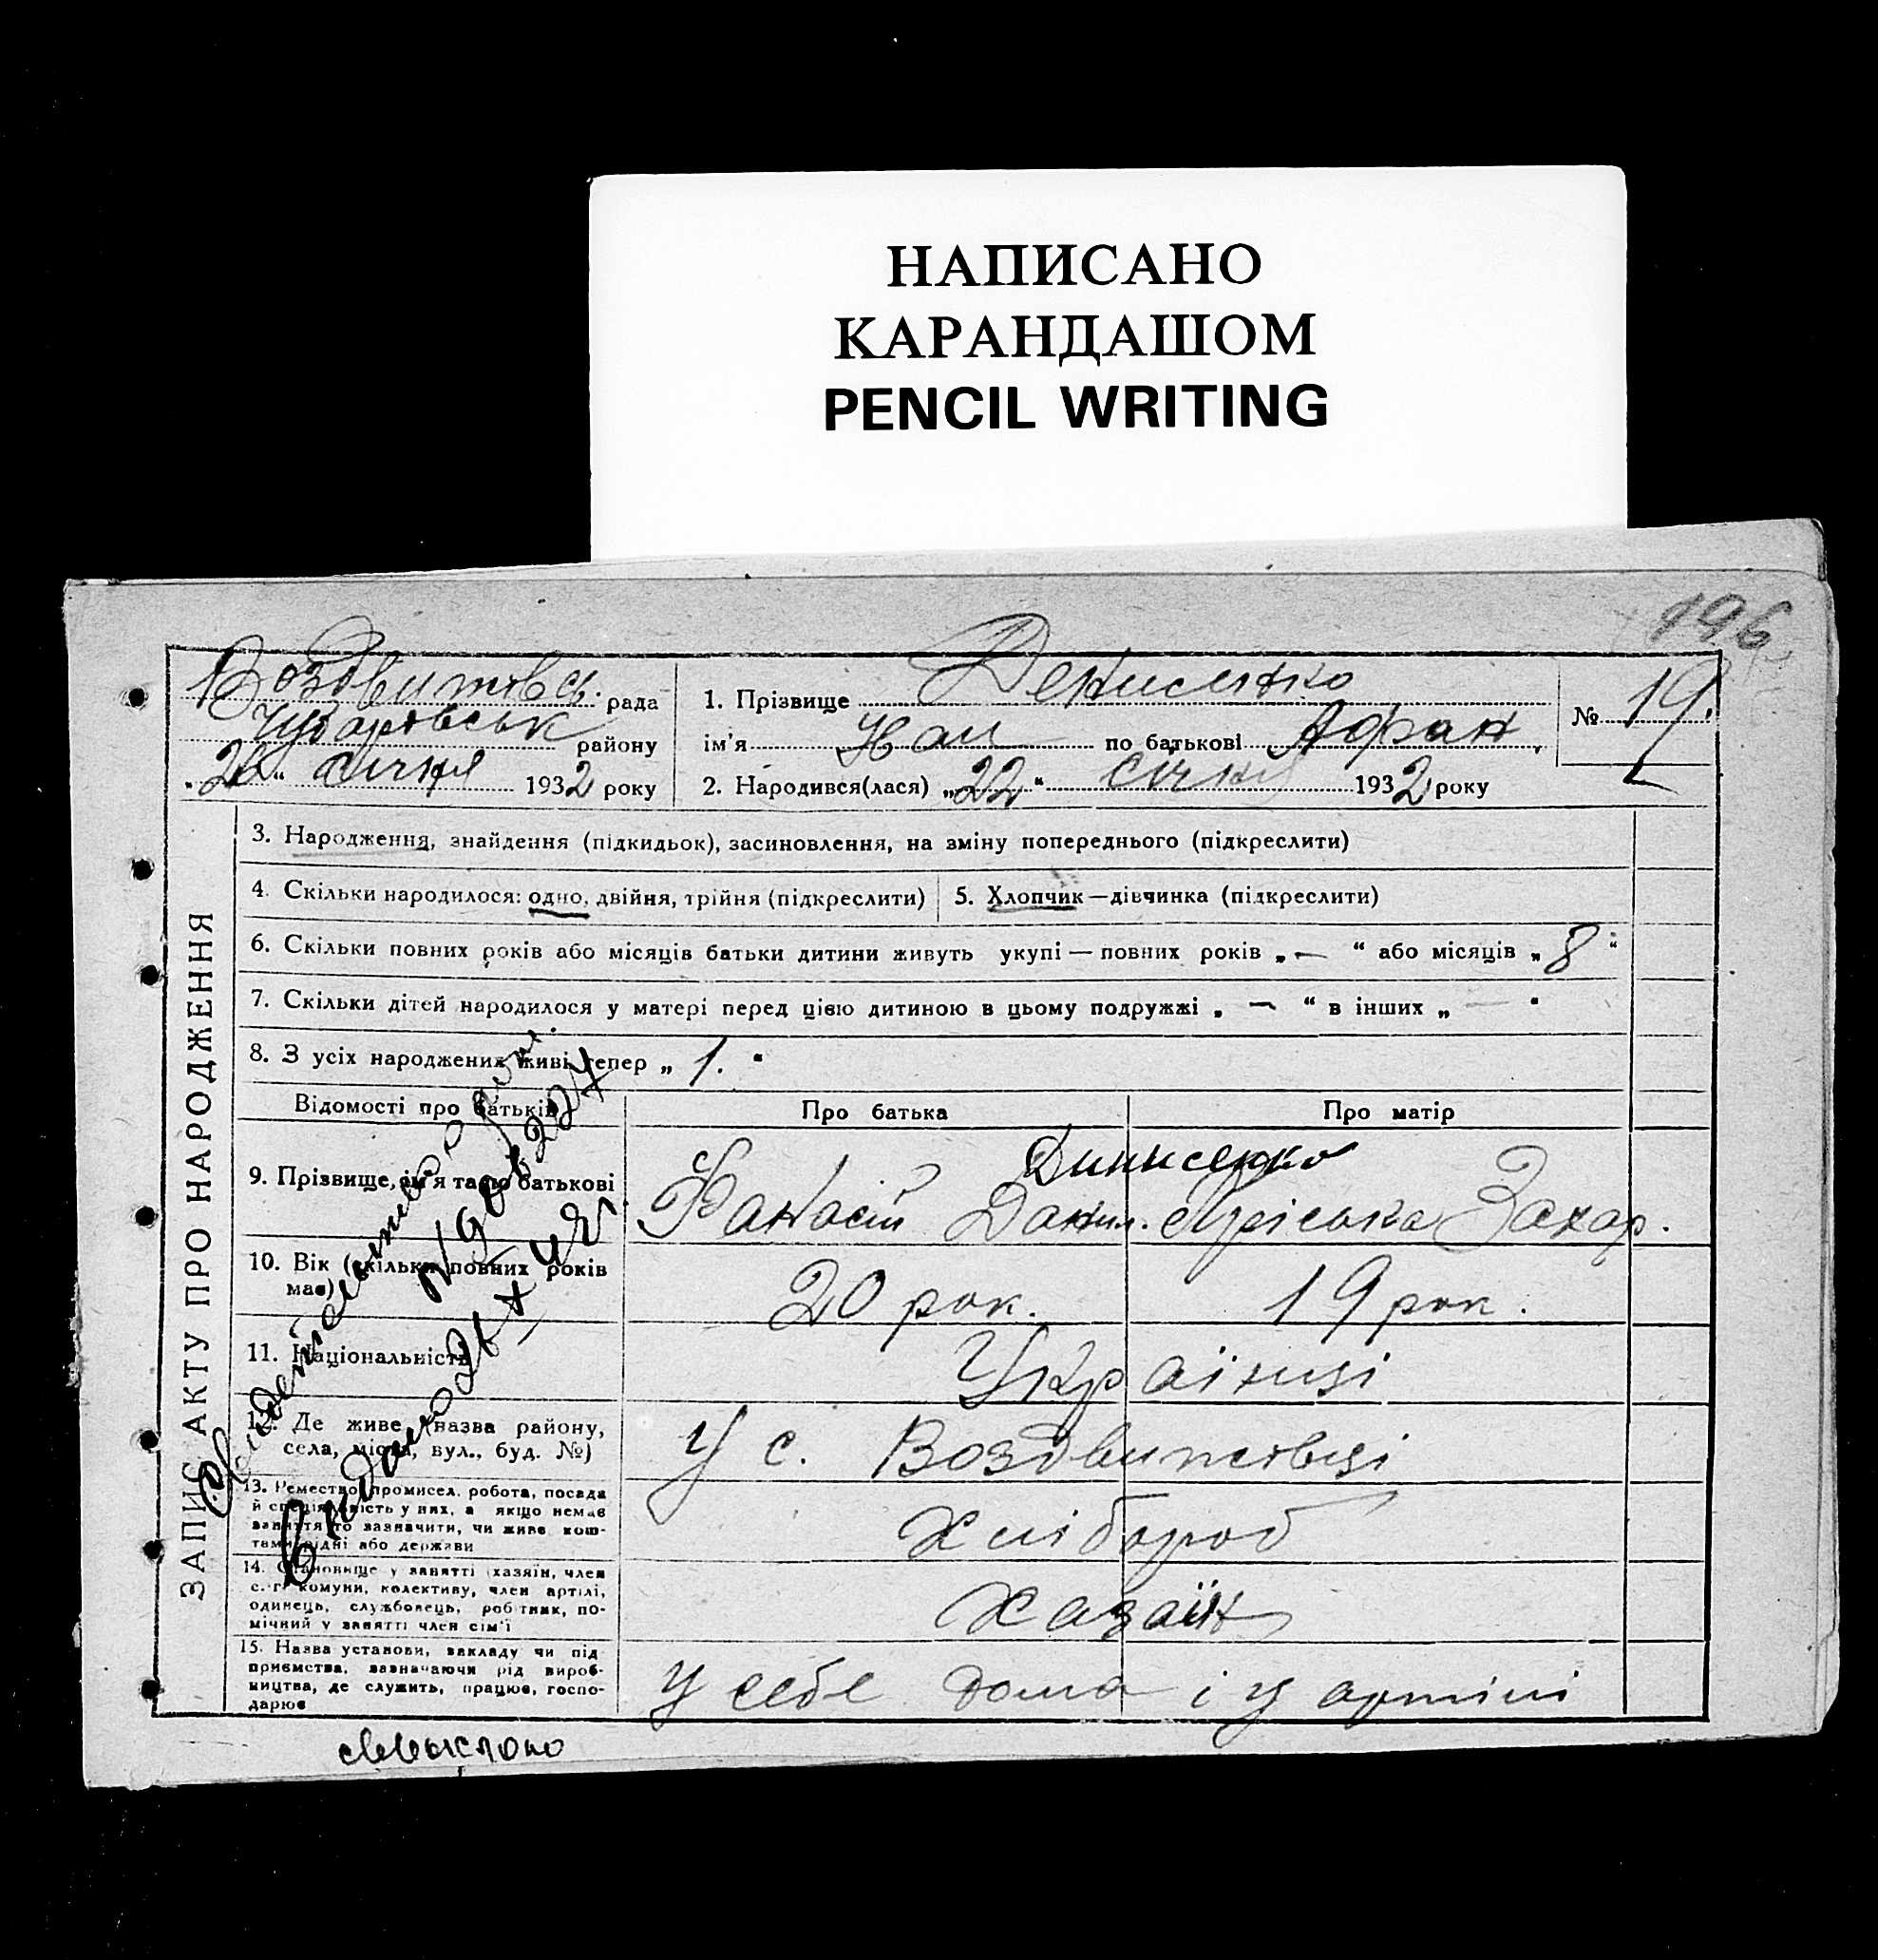 НАПИСАНО
КАРАНДАШОМ
PENCIL WRITING
196
Воздвижівсь. рада
Чубарівськ району
1932 року
1. Прізвище Денисенко
ім'я по батькові Афан
№ 19.
2. Народився(лася) „22" січня 1932 року
ЗАПИС АКТУ ПРО НАРОДЖЕННЯ
3. Народження, знайдення (підкидьок), засиновлення, на зміну попереднього (підкреслити)
4. Скільки народилося: одно, двійня, трійня (підкреслити)
5. Хлопчик—дівчинка (підкреслити)
6. Скільки повних років або місяців батьки дитини живуть укупі — повних років „—“ або місяців „8“
7. Скільки дітей народилося у матері перед цією дитиною в цьому подружжі „—“ в інших „—“
8. З усіх народжених живі тепер „1."
Відомості про батьків
Про батька
Про матір
9. Прізвище, ім'я та по батькові
Динисенко
Фанасій Данил. Пріська Захар.
10. Вік (скільки повних років має)
20 рок.
19 рок.
11. Національність
Українці
12. Де живе (назва району, села, міста, вул., буд. №)
У с. Воздвижівці
13. Ремество, промисел, робота, посада й спеціяльність у них, а якщо немає заняття то зазначити, чи живе коштами рідні або держави
Хлібороб
14. Становище у занятті (хазяїн, член с.-г. комуни, колективу, член артілі, одинець, службовець, робітник, помічний у занятті член сім'ї
Хазаїн
15. Назва установи, закладу чи підприємства, зазначаючи рід виробництва, де служить, працює, господарює
У себе дома і у артілі